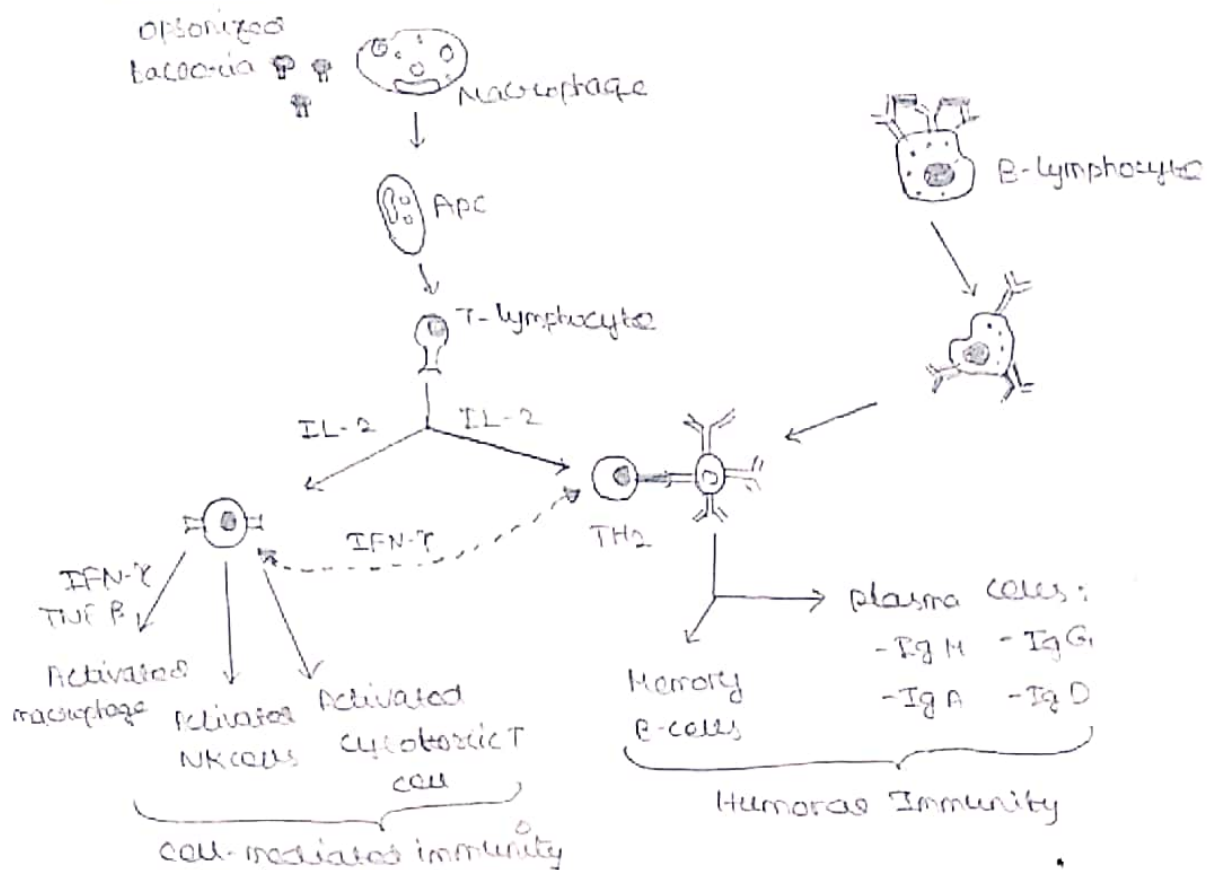 Opsonized
bacteria
Macrophage
APC
B-lymphocyte
T-lymphocyte
IL-2
IL-2
IFN-γ
TH2
IFN-γ
TNF β
Activated
macrophage
Activated
NK cells
Activated
cytotoxic T
cell
Memory
B-cells
plasma cells:
-IgM -IgG
-IgA -IgD
cell-mediated immunity
Humoral Immunity